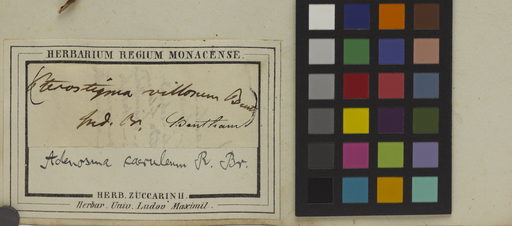 HERBARIUM REGIUM MONACENSE.
(Pterostigma villosum Benth)
Ind. Or. Bentham
Adenosma caeruleum R. Br.
HERB. ZUCCARINII.
Herbar. Univ. Ludov. Maximil.